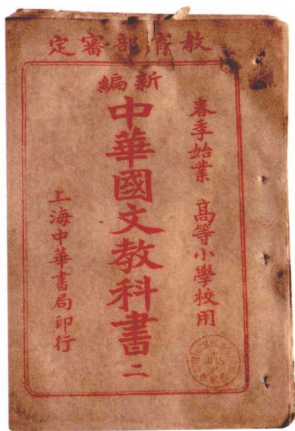 教育部審定
春季始業 高等小學校用
新編
中華國文教科書二
上海中華書局印行